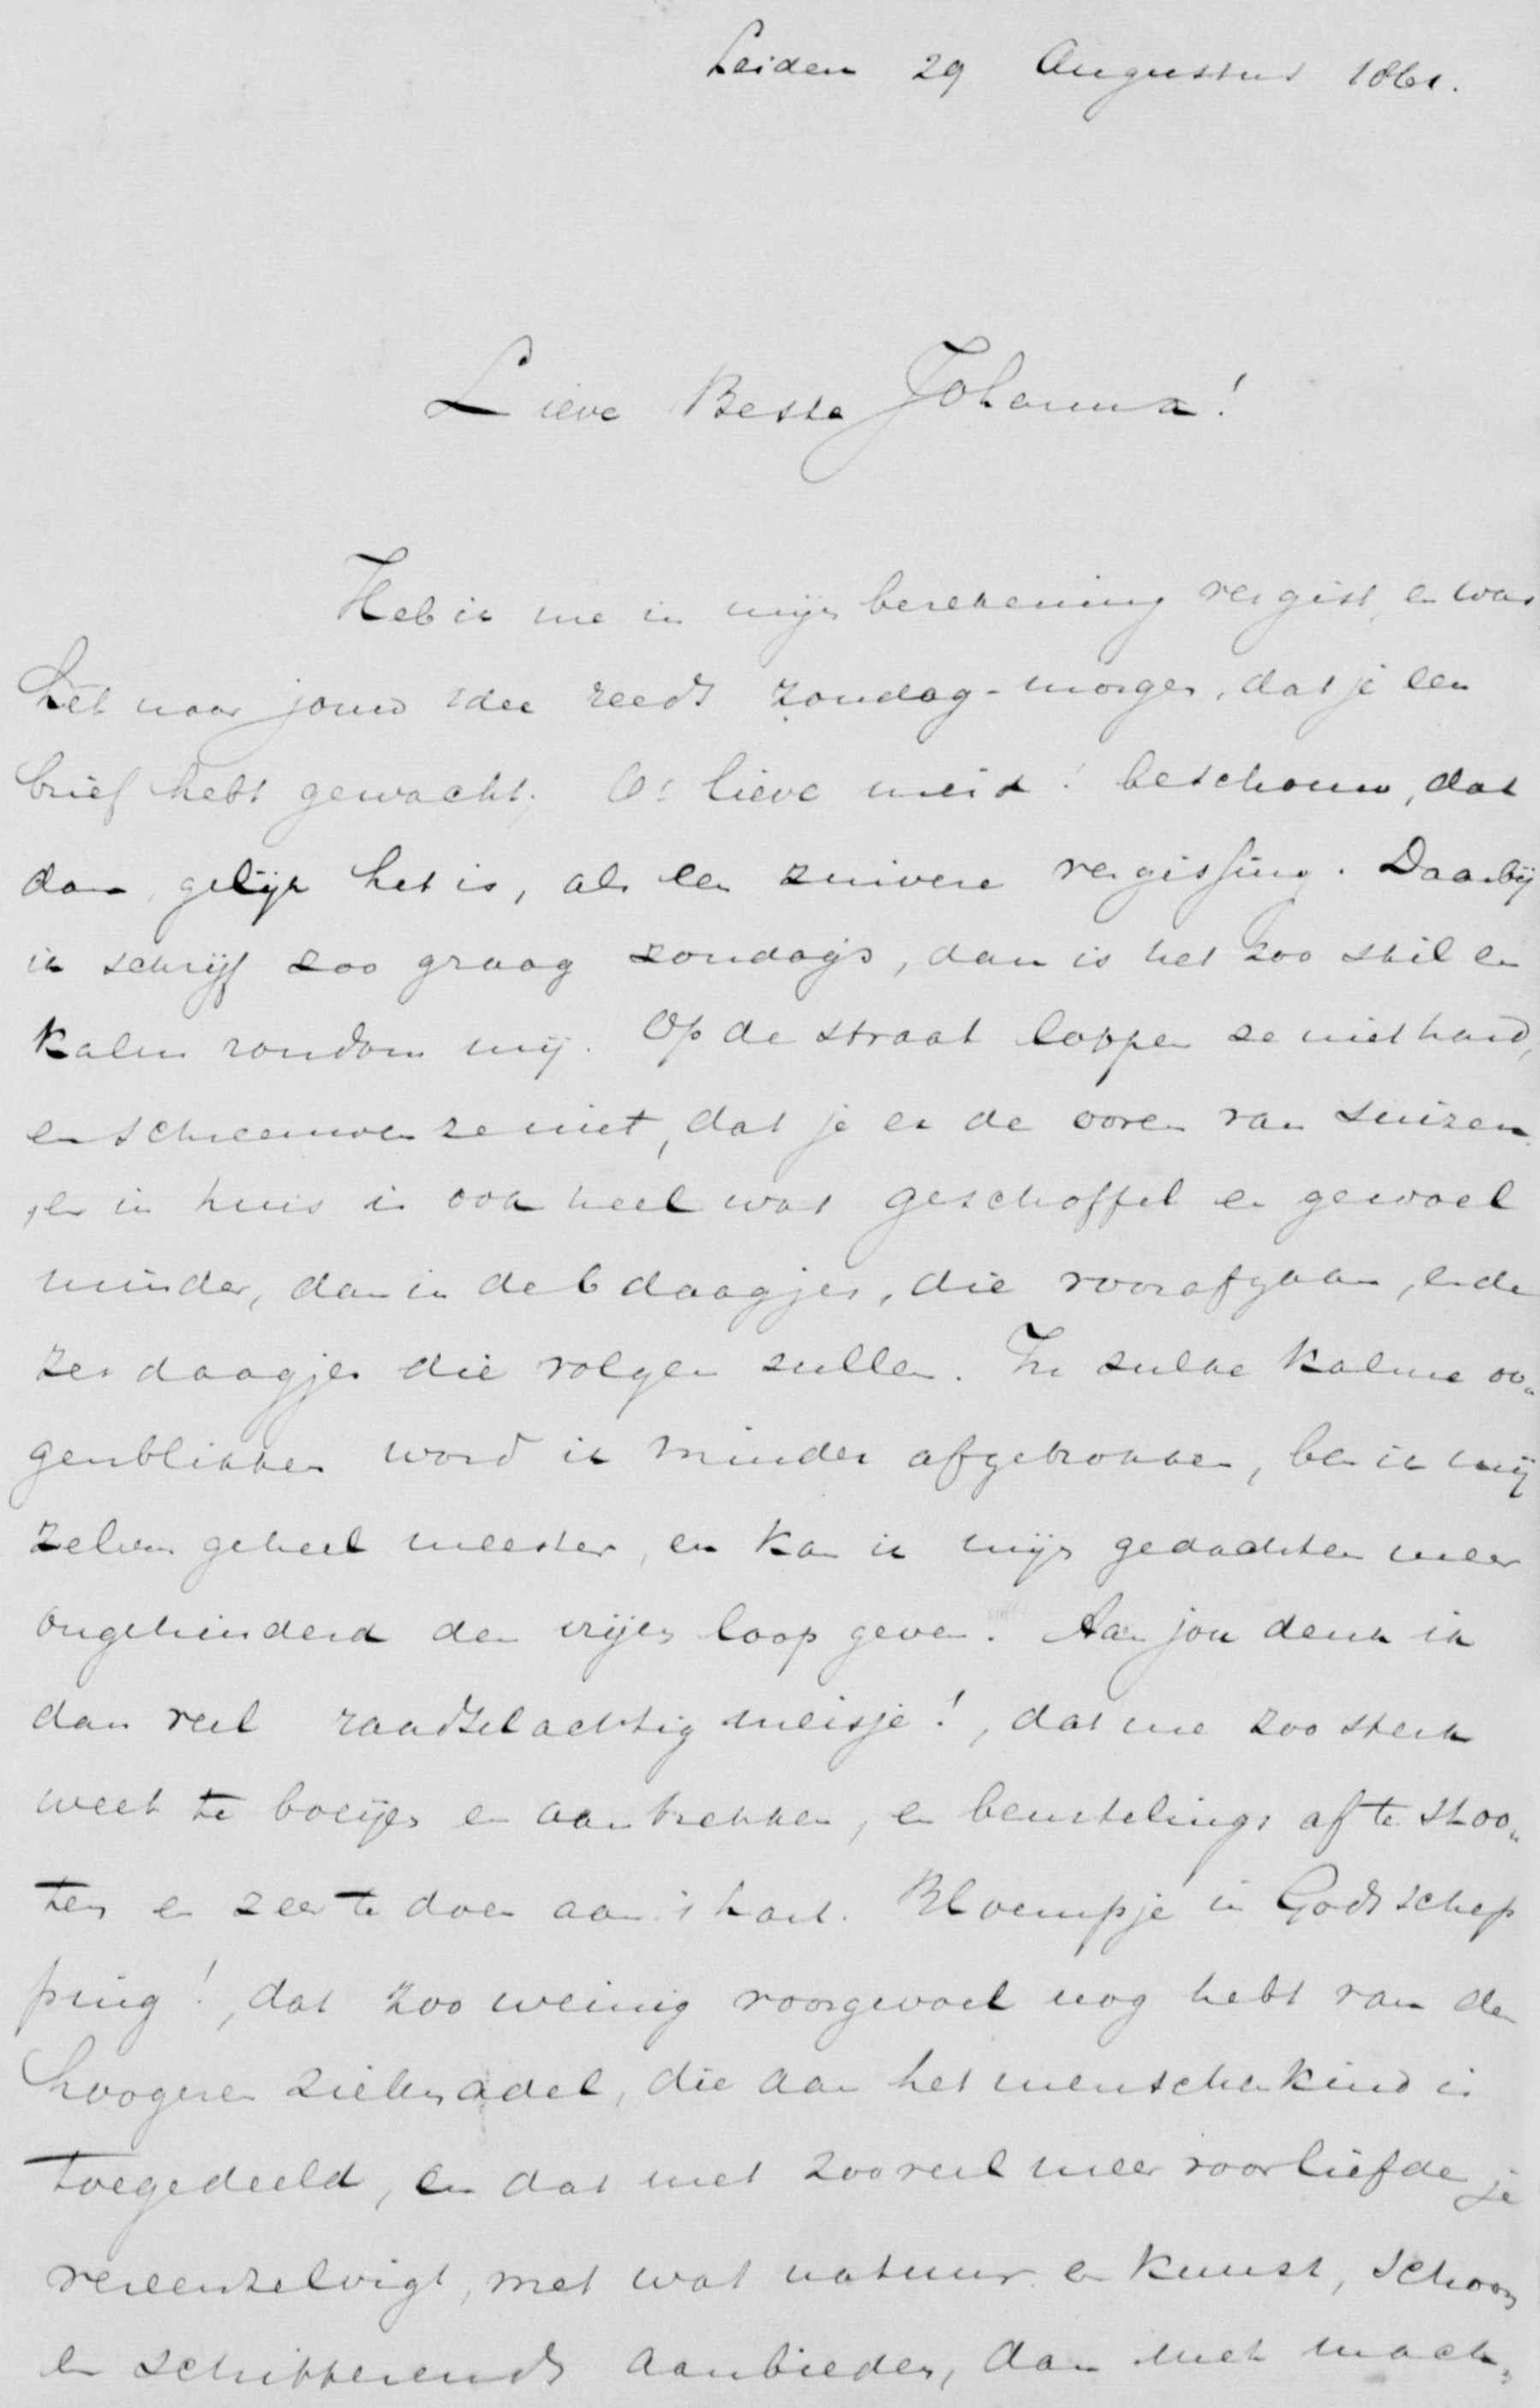 Leiden 29 Augustus 1861.
Lieve Beste Johanna!
Heb ik me in mijn berekening vergist, en was
het naar jouw idee reeds zondag-morgen, dat je een
brief hebt gewacht; O! lieve meid! beschouw, dat
dan, gelijk het is, als een zuivere vergissing. Daarbij
ik schrijf zoo graag zondags, dan is het zoo stil en
kalm rondom mij. Op de straat loopen ze niet hard,
en schreeuwen ze niet, dat je er de ooren van suizen
, en in huis is ook heel wat geschoffel en gewoel
minder, dan in de 6 daagjes, die voorafgaan, en de
zes daagjes die volgen zullen. In zulke kalme oo„
genblikken word ik minder afgetrokken, ben ik mij
zelven geheel meester, en kan ik mijn gedachten meer
ongehinderd den vrijen loop geven. Aan jou denk ik
dan veel raadselachtig meisje!, dat me zoo sterk
weet te boeijen en aantrekken, en beurtelings af te stoo„
ten en zeer te doen aan 't hart. Bloempje in Gods schep
ping!, dat zoo weinig voorgevoel nog hebt van den
hoogeren zielenadel, die aan het menschenkind is
toegedeeld, en dat met zooveel meer voorliefde je
vereenzelvigt, met wat natuur en kunst, schoon
en schitterends aanbieden, dan met